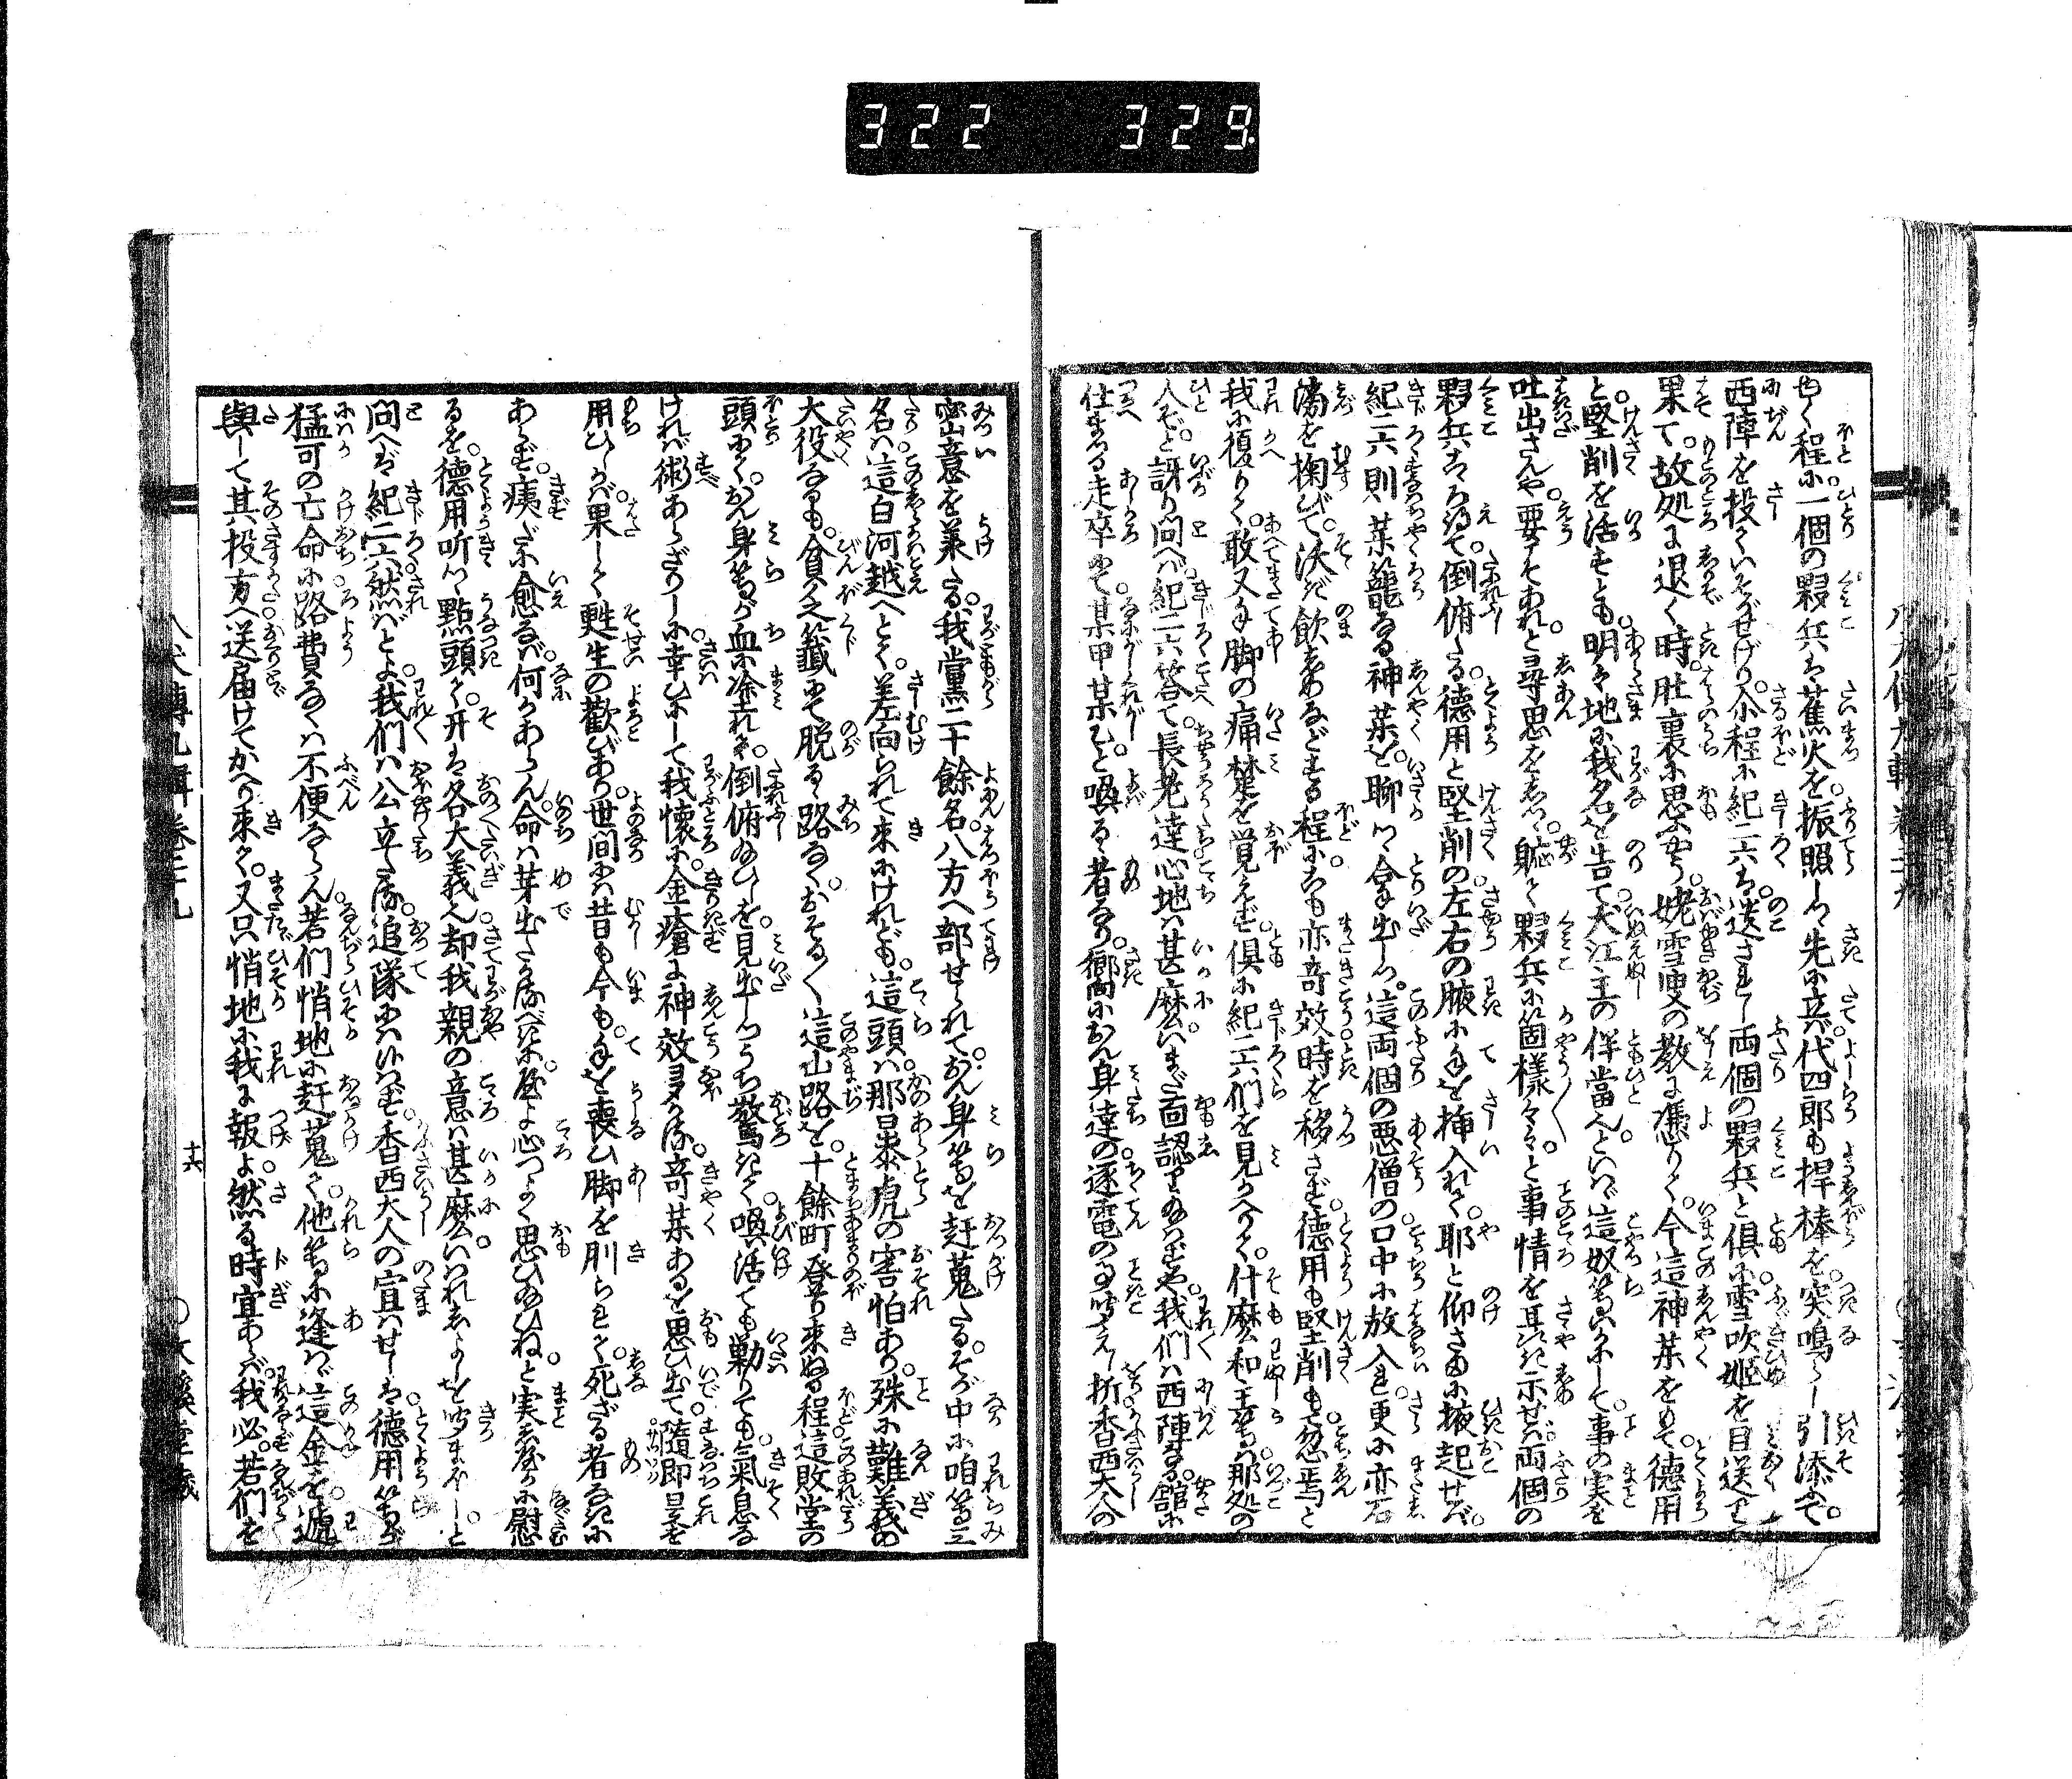 322 329
もく程に一個の夥兵は蕉火を振照しつ先に立ば代四郎も捍棒を突鳴らし引添ふて
西陣を投ていそがせけり尒程に紀二六は送されし両個の夥兵と倶に雪吹姫を目送り
果て故処に退く時肚裏に思ふやう姥雪叟の教に凴りて今這神薬をもて徳用
と堅削を活すとも明々地に我名を告て犬江主の伴當といはゞ這奴等争かにして事の実を
吐出さんや要こそあれと尋思をしつ躯て夥兵に箇様々々と事情を耳語示せば両個の
夥兵はこゝろ得て倒俯たる徳用と堅削の左右の腋に手を挿入れて耶と仰さまに掖起せば
紀二六則薬籠なる神薬を聊づゝ拿出しつ這両個の悪僧の口中に放入れ更に亦石
滴を掬びて沃ぎ飲しめなどする程にはも亦竒效時を移さず徳用も堅削も忽焉と
我に復りて敢又手脚の痛楚を覚えず倶に紀二六們を見かへりて什麽和主等は那処の
人ぞと訝り問へば紀二六答て長老達心地は甚麽にいまだ面認り給はずや我們は西陣なる舘に
仕まつる走卒にて某甲某乙と喚るゝ者なり郷向におん身達の逐電の事聞えし折香西大人の
密意を稟たる我黨二十餘名八方へ部せられておん身等を赶蒐たるそが中に咱等三
名は這白河越へとて差向られて来にけれども這頭は那暴虎の害怕あり殊に難義の
大役なるも貧乏籤にて脱るゝ路なくおそる〳〵這山路を十餘町登り来ぬる程這敗堂の
頭にておん身等が血に塗れて倒俯給ひしを見出しつうち驚きて喚活ても勦りても氣息な
ければ術あらざりしに幸ひにして我懐に金瘡に神效多かる竒薬あるを思ひ出て隨即是を
用ひしが果して甦生の歡びあり世間には昔も今も手を喪ひ脚を刖られて死ざる者なきに
あらず痍だに愈なば何かあらん命は芽出たかるべきに登よ心つよく思ひ給ひねと実しやかに慰
るを徳用听つゝ點頭て开は各大義也却我親の意は甚麽いはれしよしを聞まほしと
問へば紀二六然ばとよ我們は公立たる追隊にはいはず香西大人の宣はせしは徳用等が
猛可の亡命に路費なくは不便ならん若們悄地に赶蒐て他等に逢はゞ這金を逓
與して其投方へ送届けてかへり来て又只悄地に我に報よ然る時宜あらば我必若們を
八犬傳九輯巻二十九
十六